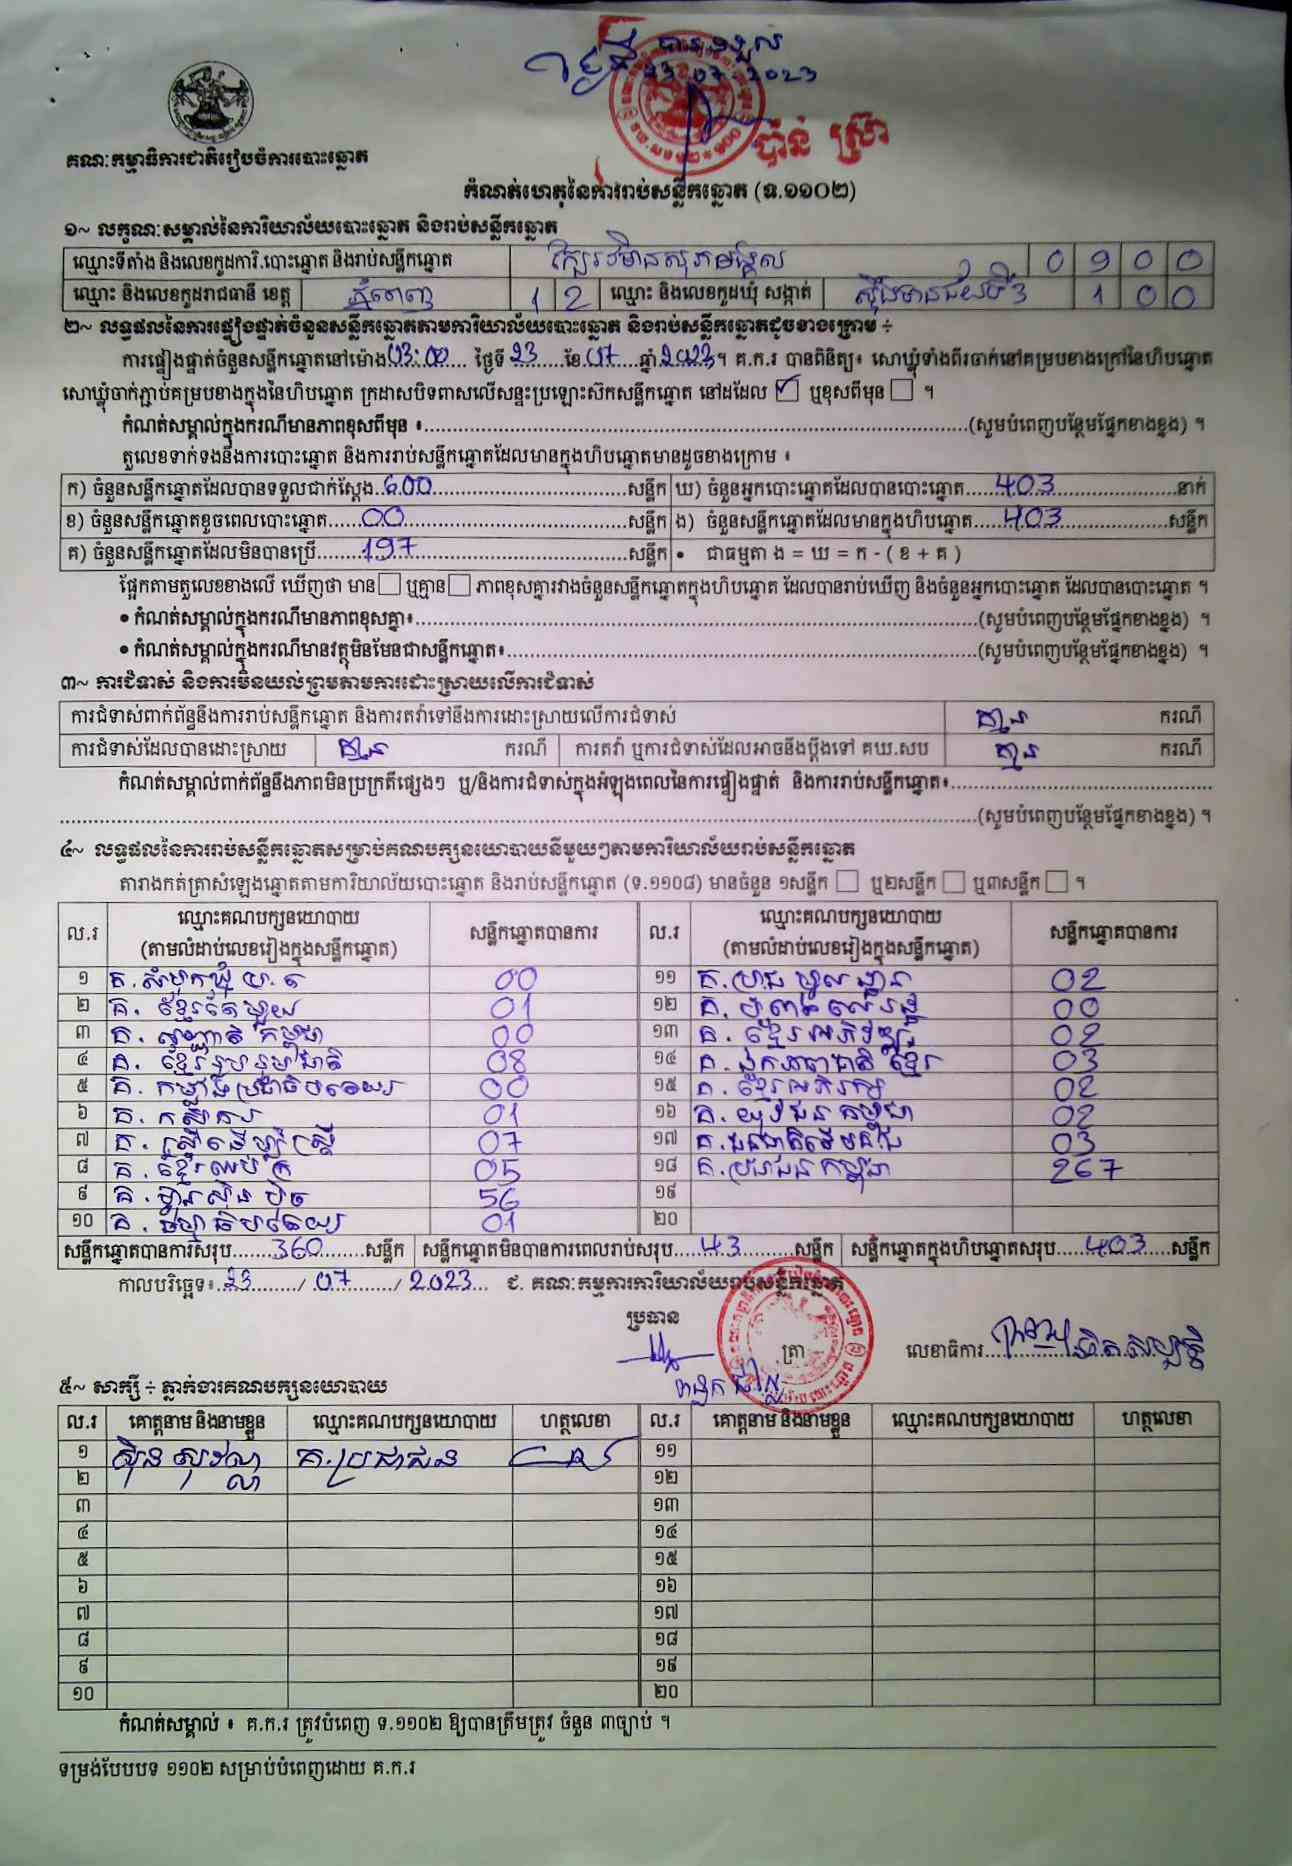 បានទទួល
23 07 2023
ប៉ាន់ ស្រ៊ា
គណៈកម្មាធិការជាតិរៀបចំការបោះឆ្នោត
កំណត់ហេតុនៃការរាប់សន្លឹកឆ្នោត (ទ.១១០២)
១~ លក្ខណៈសម្គាល់នៃការិយាល័យបោះឆ្នោត និងរាប់សន្លឹកឆ្នោត
ឈ្មោះទីតាំង និងលេខកូដការិ.បោះឆ្នោត និងរាប់សន្លឹកឆ្នោត 0 9 0 0
ឈ្មោះ និងលេខកូដរាជធានី ខេត្ត ភ្នំពេញ 1 2 ឈ្មោះ និងលេខកូដឃុំ សង្កាត់ ស្ទឹងមានជ័យទី3 1 0 0
២~ លទ្ធផលនៃការផ្ទៀងផ្ទាត់ចំនួនសន្លឹកឆ្នោតតាមការិយាល័យបោះឆ្នោត និងរាប់សន្លឹកឆ្នោតដូចខាងក្រោម ÷
ការផ្ទៀងផ្ទាត់ចំនួនសន្លឹកឆ្នោតនៅម៉ោង 03:00 ថ្ងៃទី 23 ខែ 07 ឆ្នាំ 2023។ គ.ក.រ បានពិនិត្យ៖ សោឃ្លុំទាំងពីរចាក់នៅគម្របខាងក្រៅនៃហិបឆ្នោត
សោឃ្លុំចាក់ភ្ជាប់គម្របខាងក្នុងនៃហិបឆ្នោត ក្រដាសបិទពាសលើសន្ទះប្រឡោះស៊កសន្លឹកឆ្នោត នៅដដែល ☑ ឬខុសពីមុន ☐ ។
កំណត់សម្គាល់ក្នុងករណីមានភាពខុសពីមុន ៖ (សូមបំពេញបន្ថែមផ្នែកខាងខ្នង) ។
តួលេខទាក់ទងនឹងការបោះឆ្នោត និងការរាប់សន្លឹកឆ្នោតដែលមានក្នុងហិបឆ្នោតមានដូចខាងក្រោម ៖
ក) ចំនួនសន្លឹកឆ្នោតដែលបានទទួលជាក់ស្តែង 600 សន្លឹក ឃ) ចំនួនអ្នកបោះឆ្នោតដែលបានបោះឆ្នោត 403 នាក់
ខ) ចំនួនសន្លឹកឆ្នោតខូចពេលបោះឆ្នោត 00 សន្លឹក ង) ចំនួនសន្លឹកឆ្នោតដែលមានក្នុងហិបឆ្នោត 403 សន្លឹក
គ) ចំនួនសន្លឹកឆ្នោតដែលមិនបានប្រើ 197 សន្លឹក • ជាធម្មតា ង = ឃ = ក - ( ខ + គ )
ផ្អែកតាមតួលេខខាងលើ ឃើញថា មាន ☐ ឬគ្មាន ☐ ភាពខុសគ្នារវាងចំនួនសន្លឹកឆ្នោតក្នុងហិបឆ្នោត ដែលបានរាប់ឃើញ និងចំនួនអ្នកបោះឆ្នោត ដែលបានបោះឆ្នោត ។
• កំណត់សម្គាល់ក្នុងករណីមានភាពខុសគ្នា៖ (សូមបំពេញបន្ថែមផ្នែកខាងខ្នង) ។
• កំណត់សម្គាល់ក្នុងករណីមានវត្ថុមិនមែនជាសន្លឹកឆ្នោត៖ (សូមបំពេញបន្ថែមផ្នែកខាងខ្នង) ។
៣~ ការជំទាស់ និងការមិនយល់ព្រមតាមការដោះស្រាយលើការជំទាស់
ការជំទាស់ពាក់ព័ន្ធនឹងការរាប់សន្លឹកឆ្នោត និងការតវ៉ាទៅនឹងការដោះស្រាយលើការជំទាស់ គ្មាន ករណី
ការជំទាស់ដែលបានដោះស្រាយ គ្មាន ករណី ការតវ៉ា ឬការជំទាស់ដែលអាចនឹងប្តឹងទៅ គឃ.សប គ្មាន ករណី
កំណត់សម្គាល់ពាក់ព័ន្ធនឹងភាពមិនប្រក្រតីផ្សេងៗ ឬ/និងការជំទាស់ក្នុងអំឡុងពេលនៃការផ្ទៀងផ្ទាត់ និងការរាប់សន្លឹកឆ្នោត៖
(សូមបំពេញបន្ថែមផ្នែកខាងខ្នង) ។
៤~ លទ្ធផលនៃការរាប់សន្លឹកឆ្នោតសម្រាប់គណបក្សនយោបាយនីមួយៗតាមការិយាល័យរាប់សន្លឹកឆ្នោត
តារាងកត់ត្រាសំឡេងឆ្នោតតាមការិយាល័យបោះឆ្នោត និងរាប់សន្លឹកឆ្នោត (ទ.១១០៨) មានចំនួន ១សន្លឹក ☐ ឬ២សន្លឹក ☐ ឬ៣សន្លឹក ☐ ។
ល.រ ឈ្មោះគណបក្សនយោបាយ (តាមលំដាប់លេខរៀងក្នុងសន្លឹកឆ្នោត) សន្លឹកឆ្នោតបានការ ល.រ ឈ្មោះគណបក្សនយោបាយ (តាមលំដាប់លេខរៀងក្នុងសន្លឹកឆ្នោត) សន្លឹកឆ្នោតបានការ
១ 00 ១១ 02
២ គ. ខ្មែរតែមួយ 01 ១២ 00
៣ 00 ១៣ 02
៤ 08 ១៤ 03
៥ គ. កម្លាំងប្រជាធិបតេយ្យ 00 ១៥ 02
៦ គ. កសិករ 01 ១៦ គ. យុវជនកម្ពុជា 02
៧ គ. ស្ត្រីដើម្បីស្ត្រី 07 ១៧ 03
៨ 05 ១៨ គ.ប្រជាជនកម្ពុជា 267
៩ គ. ហ៊្វុនស៊ិនប៉ិច 56 ១៩
១០ 01 ២០
សន្លឹកឆ្នោតបានការសរុប 360 សន្លឹក សន្លឹកឆ្នោតមិនបានការពេលរាប់សរុប 43 សន្លឹក សន្លឹកឆ្នោតក្នុងហិបឆ្នោតសរុប 403 សន្លឹក
កាលបរិច្ឆេទ៖ 23 / 07 / 2023 ជ. គណៈកម្មការការិយាល័យរាប់សន្លឹកឆ្នោត
ប្រធាន
ត្រា
លេខាធិការ
៥~ សាក្សី ÷ ភ្នាក់ងារគណបក្សនយោបាយ
ល.រ គោត្តនាម និងនាមខ្លួន ឈ្មោះគណបក្សនយោបាយ ហត្ថលេខា ល.រ គោត្តនាម និងនាមខ្លួន ឈ្មោះគណបក្សនយោបាយ ហត្ថលេខា
១ ស៊ិន សុវណ្ណា គ.ប្រជាជន ១១
២ ១២
៣ ១៣
៤ ១៤
៥ ១៥
៦ ១៦
៧ ១៧
៨ ១៨
៩ ១៩
១០ ២០
កំណត់សម្គាល់ ៖ គ.ក.រ ត្រូវបំពេញ ទ.១១០២ ឱ្យបានត្រឹមត្រូវ ចំនួន ៣ច្បាប់ ។
ទម្រង់បែបបទ ១១០២ សម្រាប់បំពេញដោយ គ.ក.រ